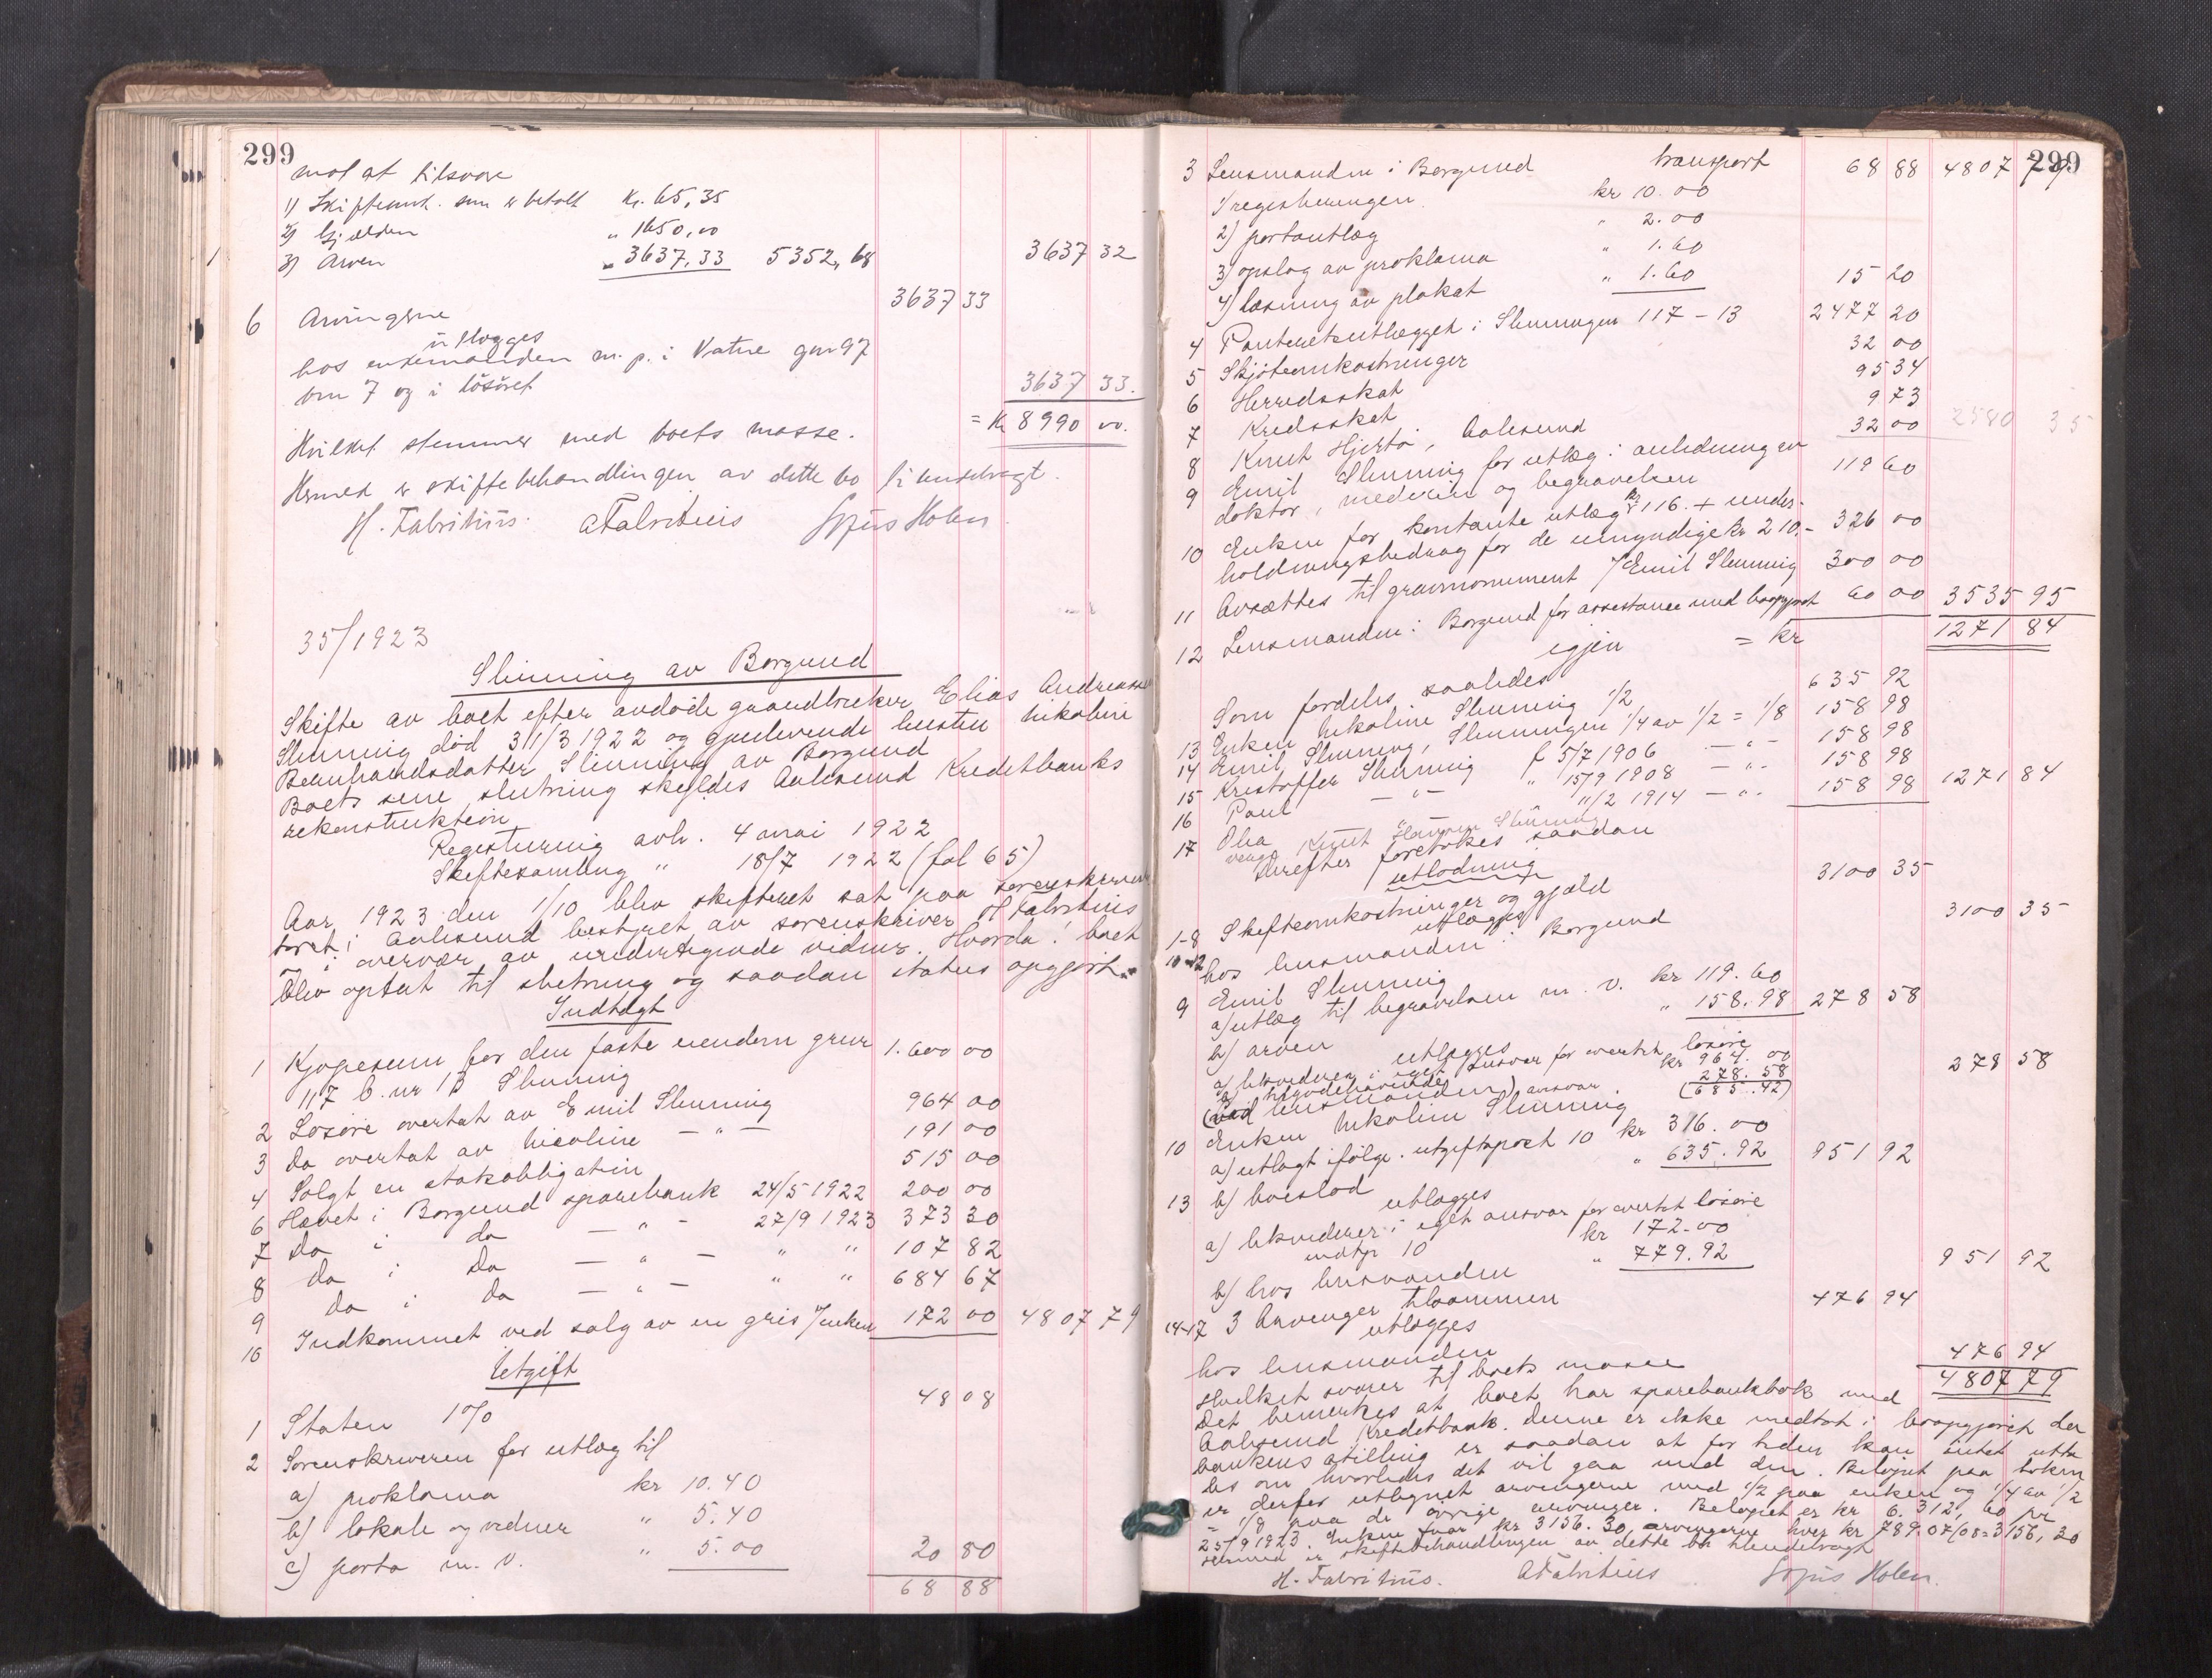 299
mot at tilsvare
1) Skifteomk. som er betalt Kr. 65,35
2) Gjælden " 1650,00
3) Arven " 3637,33 5352,68 3637 32
6 Arvingerne 3637 33
utlægges
hos enkemanden m. p. i Vatne gnr 97
bnr 7 og i løsøret 3637 33.
= Kr 8990 00.
Hvilket stemmer med boets masse.
Hermed er skiftebehandlingen av dette bo tilendebragt.
H. Fabritius. AFabritius Sofus Holen
35/1923
Slinning av Borgund
Skifte av boet efter avdøde gaardbruker Elias Andreassen
Slinning død 31/3 1922 og gjenlevende hustru Nikoline
Bernhardsdatter Slinning av Borgund
Boets sene slutning skyldes Aalesund Kreditbanks
rekonstruktion
Registrering avh. 4 mai 1922
Skiftesamling " 18/7 1922 (fol 65)
Aar 1923 den 1/10 blev skifteret sat paa sorenskriver
toret i Aalesund bestyret av sorenskriver H Fabritius
i overvær av undertegnede vidner. Hvorda: boet
blev optat til slutning og saadan status opgjort.
Indtægt
1 Kjøpesum for den faste eiendom gnr 1.600 00
117 b. nr 13 Slinning
2 Løsøre overtat av Emil Slinning 964 00
3 Do overtat av Nicoline — " — 191 00
4 Solgt en statsobligation 515 00
6 Hævet i Borgund sparebank 24/5 1922 200 00
7 Do i do — " — 27/9 1923 373 30
8 do i do — " — " " 107 82
9 do i do — " — " " 684 67
10 Indkommet ved salg av en gris /enken 172 00 4807 79
Utgift
1 Staten 1% 48 08
2 Sorenskriveren for utlæg til
a) proklama kr 10.40
b) lokale og vidner " 5.40
c) porto m. v. " 5.00 20 80
68 88
299
3 Lensmanden i Borgund transport 68 88 4807 79
1) registreringen kr 10.00
2) portoutlæg " 2.00
3) opslag av proklama " 1.60
4) læsning av plakat " 1.60 15 20
4 Panteretsutlægget i Slinningen 117-13 2477 20
5 Skjøteomkostninger 32 00
6 Herredsskat 95 34
7 Kredsskat 9 73
8 Knut Hjertø, Aalesund 32 00 2580 35
9 Emil Slinning for utlæg i anledning av
doktor, medicin og begravelsen 119 60
10 Enken for kontante utlæg kr 116. + under-
holdningsbidrag for de umyndige kr 210.- 326 00
11 Avsættes til gravmonument /Emil Slinning 300 00
12 Lensmanden i Borgund for assistance med boopgjøret 60 00 3535 95
igjen = kr 1271 84
Som fordeles saaledes
13 Enken Nikoline Slinning 1/2 635 92
14 Emil Slinning, Slinningen 1/4 av 1/2 = 1/8 158 98
15 Kristoffer Slinning f 5/7 1906 — " — 158 98
16 Paul — " — " 15/9 1908 — " — 158 98
17 Olia — " — " 11/2 1914 — " — 158 98 1271 84
verge Knut Hansen Slinning
Herefter foretokes saadan
utlodning
1-8 Skifteomkostninger og gjæld 3100 35
10-12 utlægges
hos lensmanden i Borgund 3100 35
9 Emil Slinning
a) utlæg til begravelsen m. v. kr 119.60
b) arven " 158.98 278 58
utlægges
a) likviderer i eget ansvar for overtat løsøre kr 964.00
b) tilgodehavende 278.58 278 58
(ved lensmanden) ansvar (685.42)
10 Enken Nikoline Slinning
a) utlagt ifølge utgiftspost 10 kr 316.00
13 b) boeslod " 635.92 951 92
utlægges
a) likviderer i eget ansvar for overtat løsøre
indtp 10 kr 172.00
b) hos lensmanden " 779.92 951 92
14-17 3 Arvinger tilsammen 476 94
utlægges
hos lensmanden 476 94
Hvilket svarer til boets masse 4807 79
Det bemerkes at boet har sparebankbok med
Aalesund Kreditbank. Denne er ikke medtat i boopgjøret da
bankens stilling er saadan at for tiden kan intet utta
les om hvorledes det vil gaa med den. Beløpet paa boken
er derfor utlignet arvingerne med 1/2 paa enken og 1/4 av 1/2
= 1/8 paa de øvrige arvinger. Beløpet er kr 6.312,60 pr
25/9 1923. Enken faar kr 3156.30 arvingerne hver kr 789.07/08=3156,30
Hermed er skiftebehandlingen av dette bo tilendebragt
H. Fabritius. AFabritius Sofus Holen.